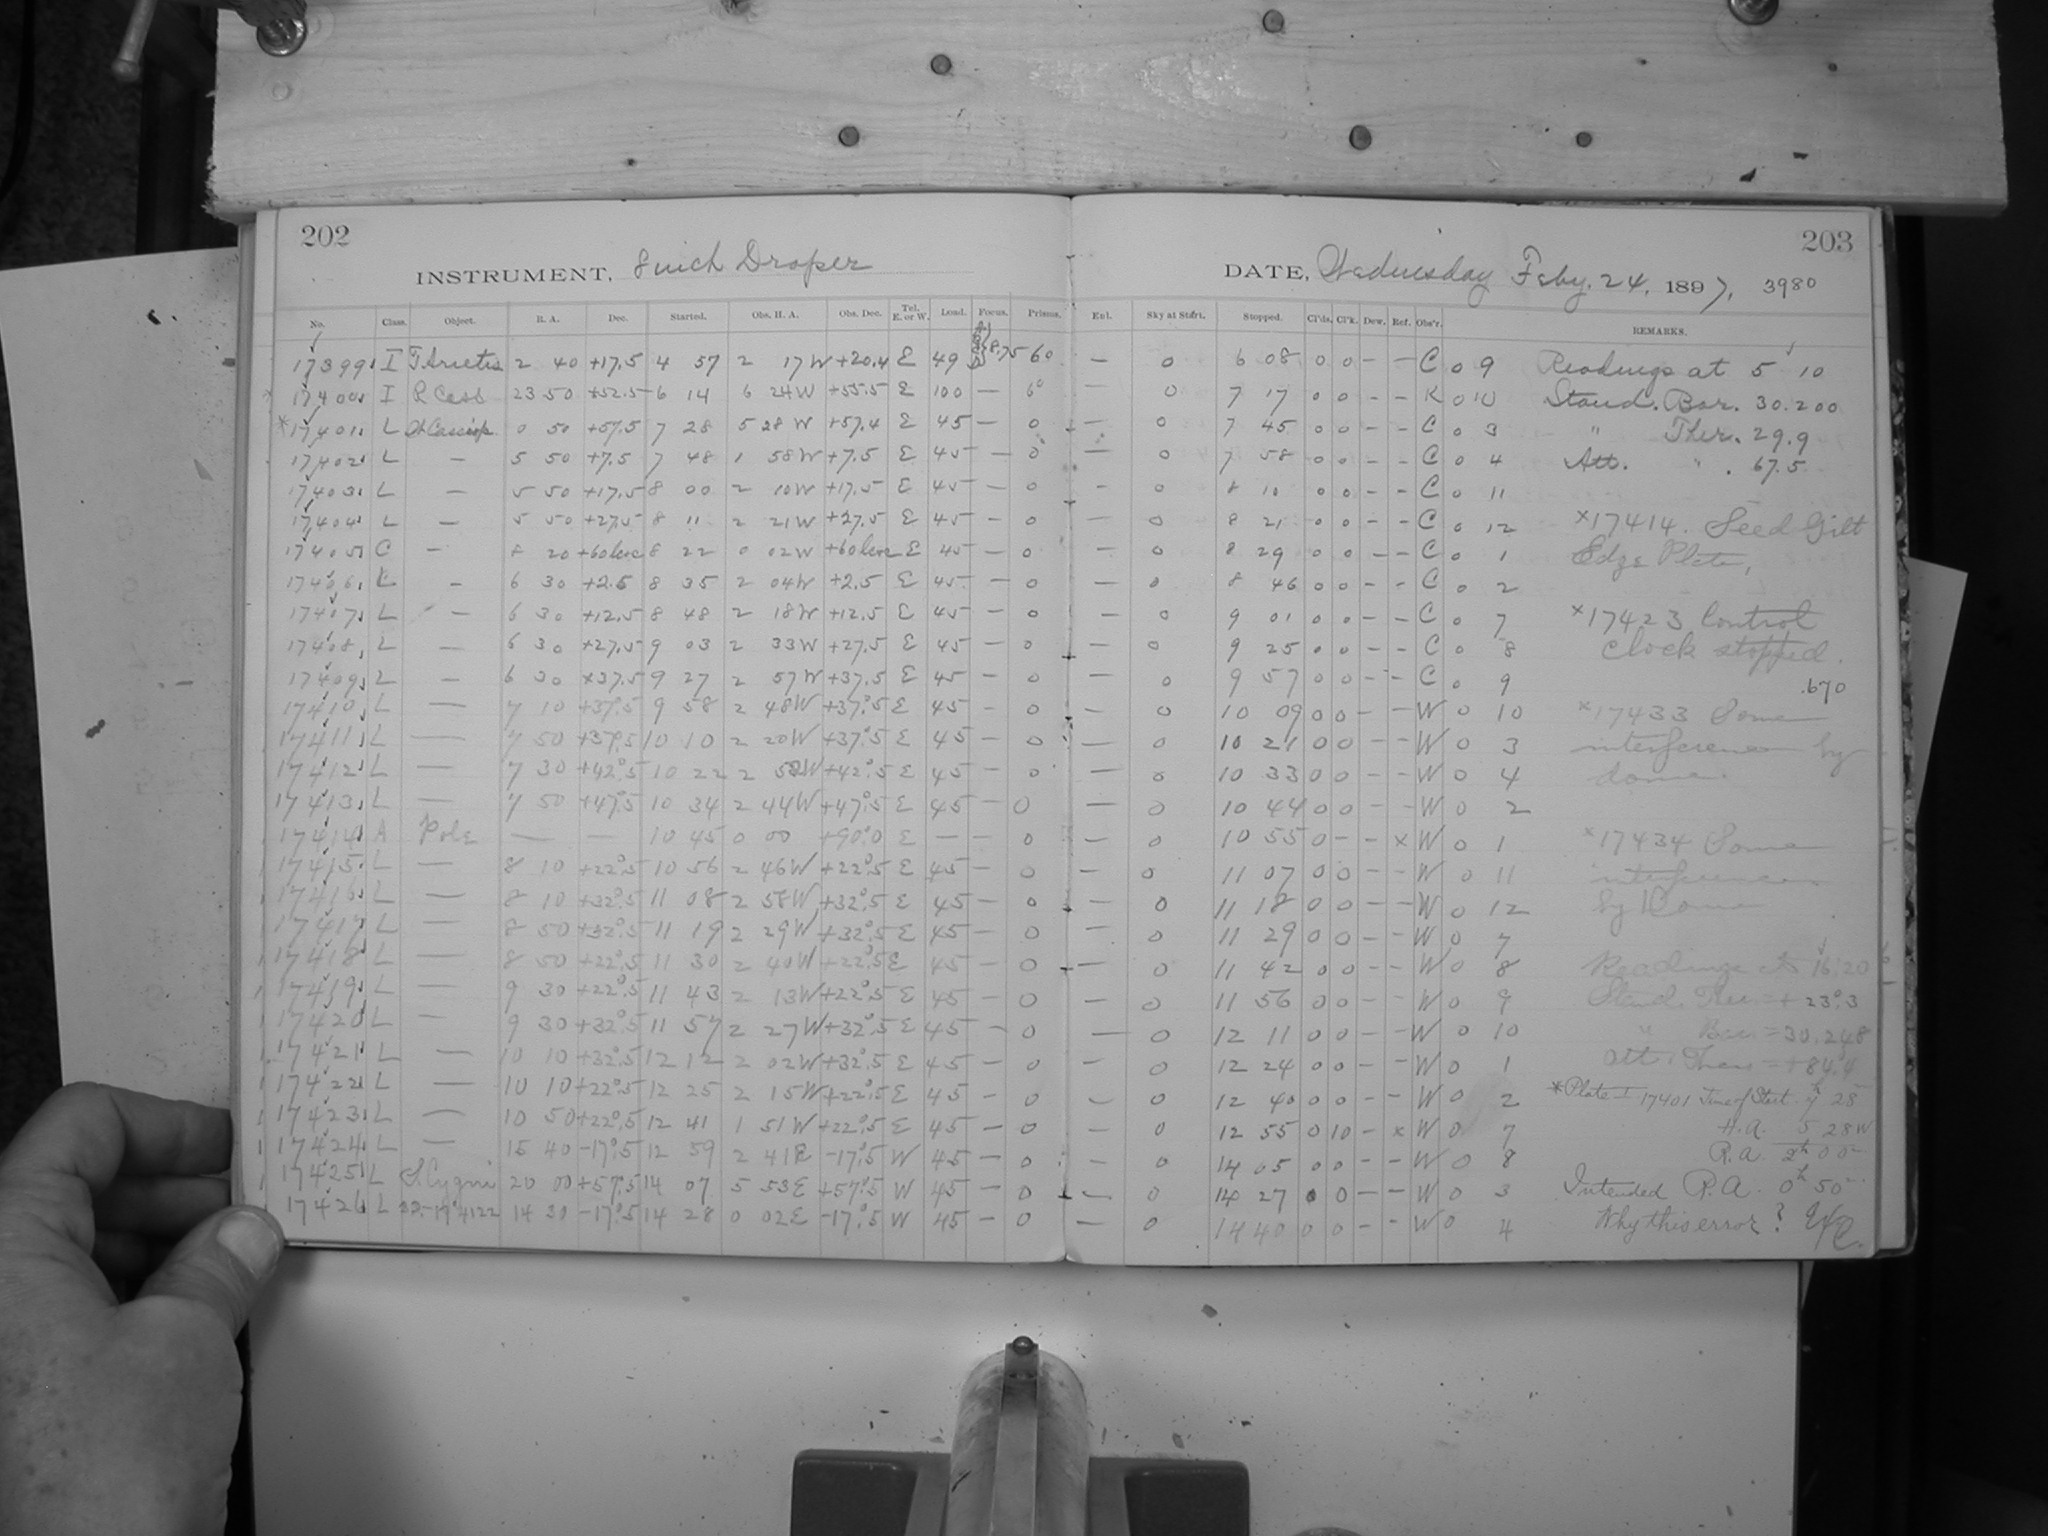 202
203
INSTRUMENT, 8 inch Draper
DATE, Wednesday Feby. 24, 1897, 3980
No. Class. Object. R. A. Dec. Started. Obs. H. A. Obs. Dec. Tel. E. or W. Load. Focus. Prisms. Enl. Sky at Start. Stopped. Cl'ds. Cl'k. Dew. Ref. Obs'r. REMARKS.
17399 I T Arietis 2 40 +17.5 4 57 2 17W +20.4 E 49 8.75 60 — 0 6 08 0 0 - - C 0 9 Readings at 5 10
17400 I R Cass 23 50 +52.5 6 14 6 24W +55.5 E 100 — 6° — 0 7 17 0 0 - - K 0 10 Stand. Bar. 30.200
*17401 L 0 50 +57.5 7 28 5 28 W +57.4 E 45 — 0 - 0 7 45 0 0 - - C 0 3 " Ther. 29.9
17402 L — 5 50 +7.5 7 48 1 58W +7.5 E 45 — 0 — 0 7 58 0 0 - - C 0 4 Att. " . 67.5
17403 L — 5 50 +17.5 8 00 2 10W +17.5 E 45 — 0 - 0 8 10 0 0 - - C 0 11
17404 L — 5 50 +27.5 8 11 2 21W +27.5 E 45 — 0 — 0 8 21 0 0 - - C 0 12 ×17414. Seed Gilt
17405 C — 8 20 +60 8 22 0 02W +60 E 45 — 0 — 0 8 29 0 0 - - C 0 1 Edge Plate,
17406 L — 6 30 +2.5 8 35 2 04W +2.5 E 45 — 0 — 0 8 46 0 0 - - C 0 2
17407 L — 6 30 +12.5 8 48 2 18W +12.5 E 45 — 0 — 0 9 01 0 0 - - C 0 7 ×17423 Control
17408 L — 6 30 +27.5 9 03 2 33W +27.5 E 45 — 0 — 0 9 25 0 0 - - C 0 8 clock stopped.
17409 L — 6 30 +37.5 9 27 2 57W +37.5 E 45 — 0 — 0 9 57 0 0 - - C 0 9 .670
17410 L — 7 10 +37°.5 9 58 2 48W +37°.5 E 45 — 0 — 0 10 09 0 0 - - W 0 10 ×17433 Some
17411 L — 7 50 +37°.5 10 10 2 20W +37°.5 E 45 — 0 — 0 10 21 0 0 - - W 0 3 interference by
17412 L — 7 30 +42°.5 10 22 2 52W +42°.5 E 45 — 0 — 0 10 33 0 0 - - W 0 4 dome.
17413 L — 7 50 +47°.5 10 34 2 44W +47°.5 E 45 — 0 — 0 10 44 0 0 - - W 0 2
17414 A Pole — — 10 45 0 00 +90°.0 E — — 0 — 0 10 55 0 - - × W 0 1 ×17434 Some
17415 L — 8 10 +22°.5 10 56 2 46W +22°.5 E 45 — 0 — 0 11 07 0 0 - - W 0 11 interference
17416 L — 8 10 +32°.5 11 08 2 58W +32°.5 E 45 — 0 — 0 11 18 0 0 - - W 0 12 by Dome
17417 L — 8 50 +32°.5 11 19 2 29W +32°.5 E 45 — 0 — 0 11 29 0 0 - - W 0 7
17418 L — 8 50 +22°.5 11 30 2 40W +22°.5 E 45 — 0 — 0 11 42 0 0 - - W 0 8 Readings at 16 20
17419 L — 9 30 +22°.5 11 43 2 13W +22°.5 E 45 — 0 — 0 11 56 0 0 - - W 0 9 Stand. Ther. = + 23°.3
17420 L — 9 30 +32°.5 11 57 2 27W +32°.5 E 45 — 0 — 0 12 11 0 0 - - W 0 10 " Bar. = 30.248
17421 L — 10 10 +32°.5 12 12 2 02W +32°.5 E 45 — 0 — 0 12 24 0 0 - - W 0 1 Att. Ther = + 84.4
17422 L — 10 10 +22°.5 12 25 2 15W +22°.5 E 45 — 0 — 0 12 40 0 0 - - W 0 2 *Plate I 17401 Time of Start. 7h 28
17423 L — 10 50 +22°.5 12 41 1 51W +22°.5 E 45 — 0 — 0 12 55 0 10 - × W 0 7 H.A. 5 28W
17424 L — 15 40 -17°.5 12 59 2 41E -17°.5 W 45 — 0 — 0 14 05 0 0 - - W 0 8 R.A. 2h 00m
17425 L S. Cygni 20 00 +57°.5 14 07 5 53E +57°.5 W 45 — 0 — 0 14 27 0 0 - - W 0 3 Intended R.A. 0h 50m
17426 L -17°4122 14 30 -17°.5 14 28 0 02E -17°.5 W 45 — 0 — 0 14 40 0 0 - - W 0 4 Why this error?